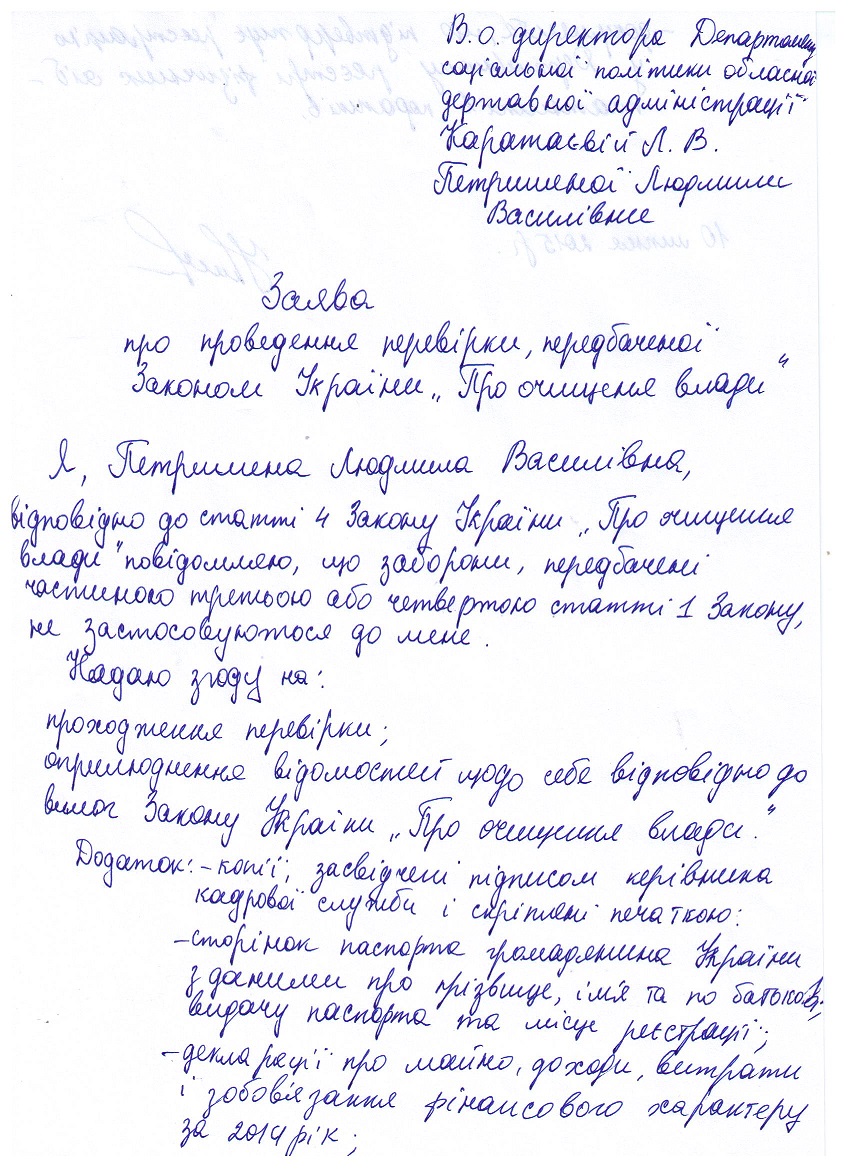 В.о. директора Департаменту
соціальної політики обласної
державної адміністрації
Каратаєвій Л. В.
Петришеної Людмили
Василівни
Заява
про проведення перевірки, передбаченої
Законом України „Про очищення влади"
Я, Петришена Людмила Василівна,
відповідно до статті 4 Закону України „Про очищення
влади" повідомляю, що заборони, передбачені
частиною третьою або четвертою статті 1 Закону,
не застосовуються до мене.
Надаю згоду на:
проходження перевірки;
оприлюднення відомостей щодо себе відповідно до
вимог Закону України „Про очищення влади."
Додаток: - копії, засвідчені підписом керівника
кадрової служби і скріплені печаткою:
- сторінок паспорта громадянина України
з даними про прізвище, ім'я та по батькові,
видачу паспорта та місце реєстрації;
- декларації про майно, доходи, витрати
і зобов'язання фінансового характеру
за 2014 рік;